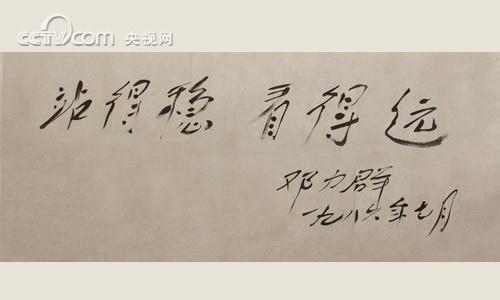 CCTV.com 央视网
站得稳 看得远
邓力群
一九八六年七月